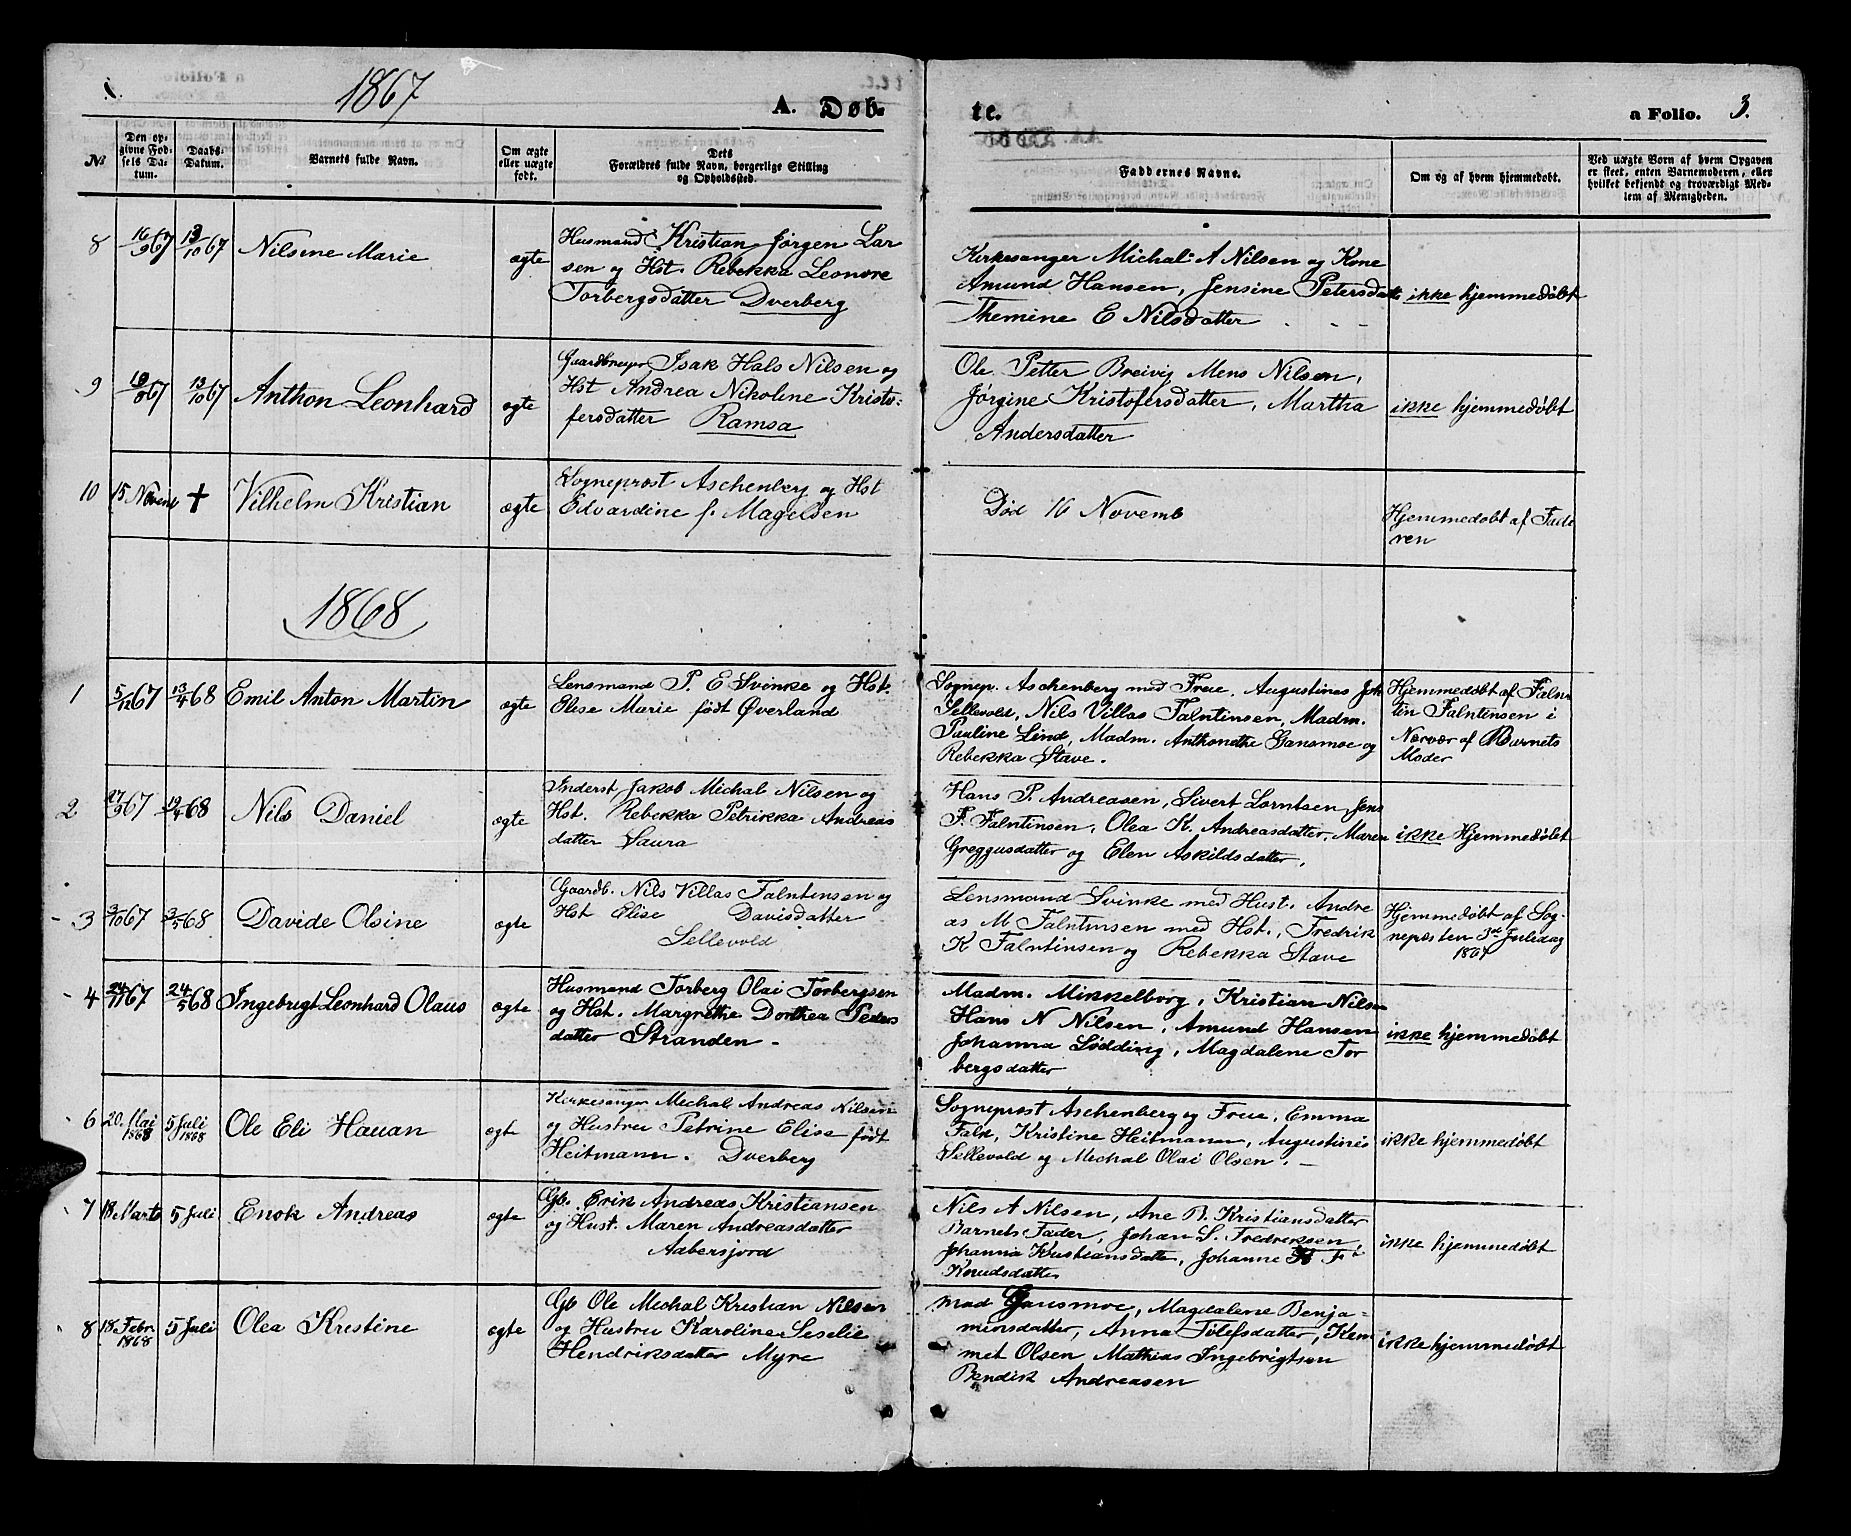 1867
A. Døb-
te.
a Folio. 3.
№
Den op-
givne Fød-
sels Da-
tum.
Daabs-
Datum.
Barnets fulde Navn.
Om ægte
eller uægte
født.
Dets
Forældres fulde Navn, borgerlige Stilling
og Opholdssted.
Faddernes Navne.
Om og af hvem hjemmedøbt.
Ved uægte Børn af hvem Opgaven
er skeet, enten Barnemoderen, eller
hvilket bekjendt og troværdigt Med-
lem af Menigheden.
8
16/9 67
13/10 67
Nilsine Marie
ægte
Husmand Kristian Jørgen Lar
sen og Hst. Rebekka Leonore
Torbergsdatter Dverberg
Kirkesanger Michal A Nilsen og Kone
Amund Hansen, Jensine Petersdatt
Themine E Nilsdatter
ikke hjemmedøbt
9
67
13/10 67
Anthon Leonhard
ægte
Gaardbruger Isak Hals Nilsen og
Hst Andrea Nikoline Kristo-
fersdatter Ramsa
Ole Petter Breivig Mens Nilsen,
Jørgine Kristofersdatter, Martha
Andersdatter
ikke hjemmedøbt
10
15 Novemb
†
Vilhelm Kristian
ægte
Sogneprøst Aschenberg og Hst
Edvardine f. Magelsen
Død 16 Novemb
Hjemmedøbt af Fade
ren
1868
1
5/12 67
13/4 68
Emil Anton Martin
ægte
Lensmand P. E Svinke og Hst.
Elise Marie født Øverland
Sognep. Aschenberg med Frue, Augustines Joh
Sellevold, Nils Villas Falntinsen, Madm.
Pauline Lind, Madm. Anthonethe Gansmoe og
Rebekka Stave.
Hjemmedøbt af Faln
tin Falntinsen i
Nærvær af Barnets
Moder
2
27/9 67
19/4 68
Nils Daniel
ægte
Inderst Jakob Michal Nilsen og
Hst. Rebekka Petrikka Andreas
datter Saura
Hans P. Andreasen, Sivert Lorntsen Jens
P. Falntinsen, Olea K. Andreasdatter, Maren
Greggusdatter og Elen Askildsdatter,
ikke Hjemmedøbt
3
3/10 67
3/5 68
Davide Olsine
ægte
Gaardb. Nils Villas Falntinsen og
Hst Elise Davisdatter
Sellevold
Lensmand Svinke med Hust. Andre
as M Falntinsen med Hst., Fredrik
K Falntinsen og Rebekka Stave
Hjemmedøbt af Sog-
nepræsten 3die Juledag
1867
4
24/11 67
24/5 68
Ingebrigt Leonhard Olaus
ægte
Husmand Torberg Olai Torbergsen
og Hst. Margrethe Dorthea Peders
datter Stranden -
Madm. Mikkelborg, Kristian Nilsen
Hans N Nilsen, Amund Hansen
Johanna Lødding, Magdalene Tor
bergsdatter
ikke hjemmedøbt
6
20. Mai
1868
5 Juli
1868
Ole Eli Hauan
ægte
Kirkesanger Mechal Andreas Nilsen
og Hustru Petrine Elise født
Heitmann. Dverberg
Sogneprøst Aschenberg og Frue, Emma
Falk, Kristine Heitmann, Augustines
Sellevold og Mechal Olai Olsen. -
ikke hjemmedøbt
7
18. Marts
5 Juli
Enok Andreas
ægte
Gb. Erik Andreas Kristiansen
og Hust. Maren Andreasdatter
Aabersjord
Nils A Nilsen, Ane B. Kristiansdatter
Barnets Fader, Johan S. Fredriksen,
Johanna Kristiansdatter, Johanne F
Knudsdatter
ikke hjemmedøbt
8
18. Febr.
1868
5 Juli
Olea Kristine
ægte
Gb Ole Mechal Kristian Nilsen
og Hustru Karoline Leselie
Hendriksdatter Myre
Mad Gansmoe, Magdalene Benja-
minsdatter, Anna Tolefsdatter, Klem
met Olsen Mathias Ingebrigtsen
Bendik Andreasen
ikke hjemmedøbt